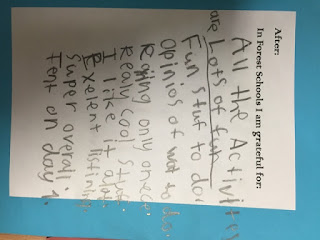 After:
In Forest Schools I am grateful for:
All the Activitys
are Lots of fun
Fun stuf to do!
Opinios of wat to do.
only onece.
Realy cool stufe.
I like it alot.
Exelent
Super overall.
Tent on day 1.